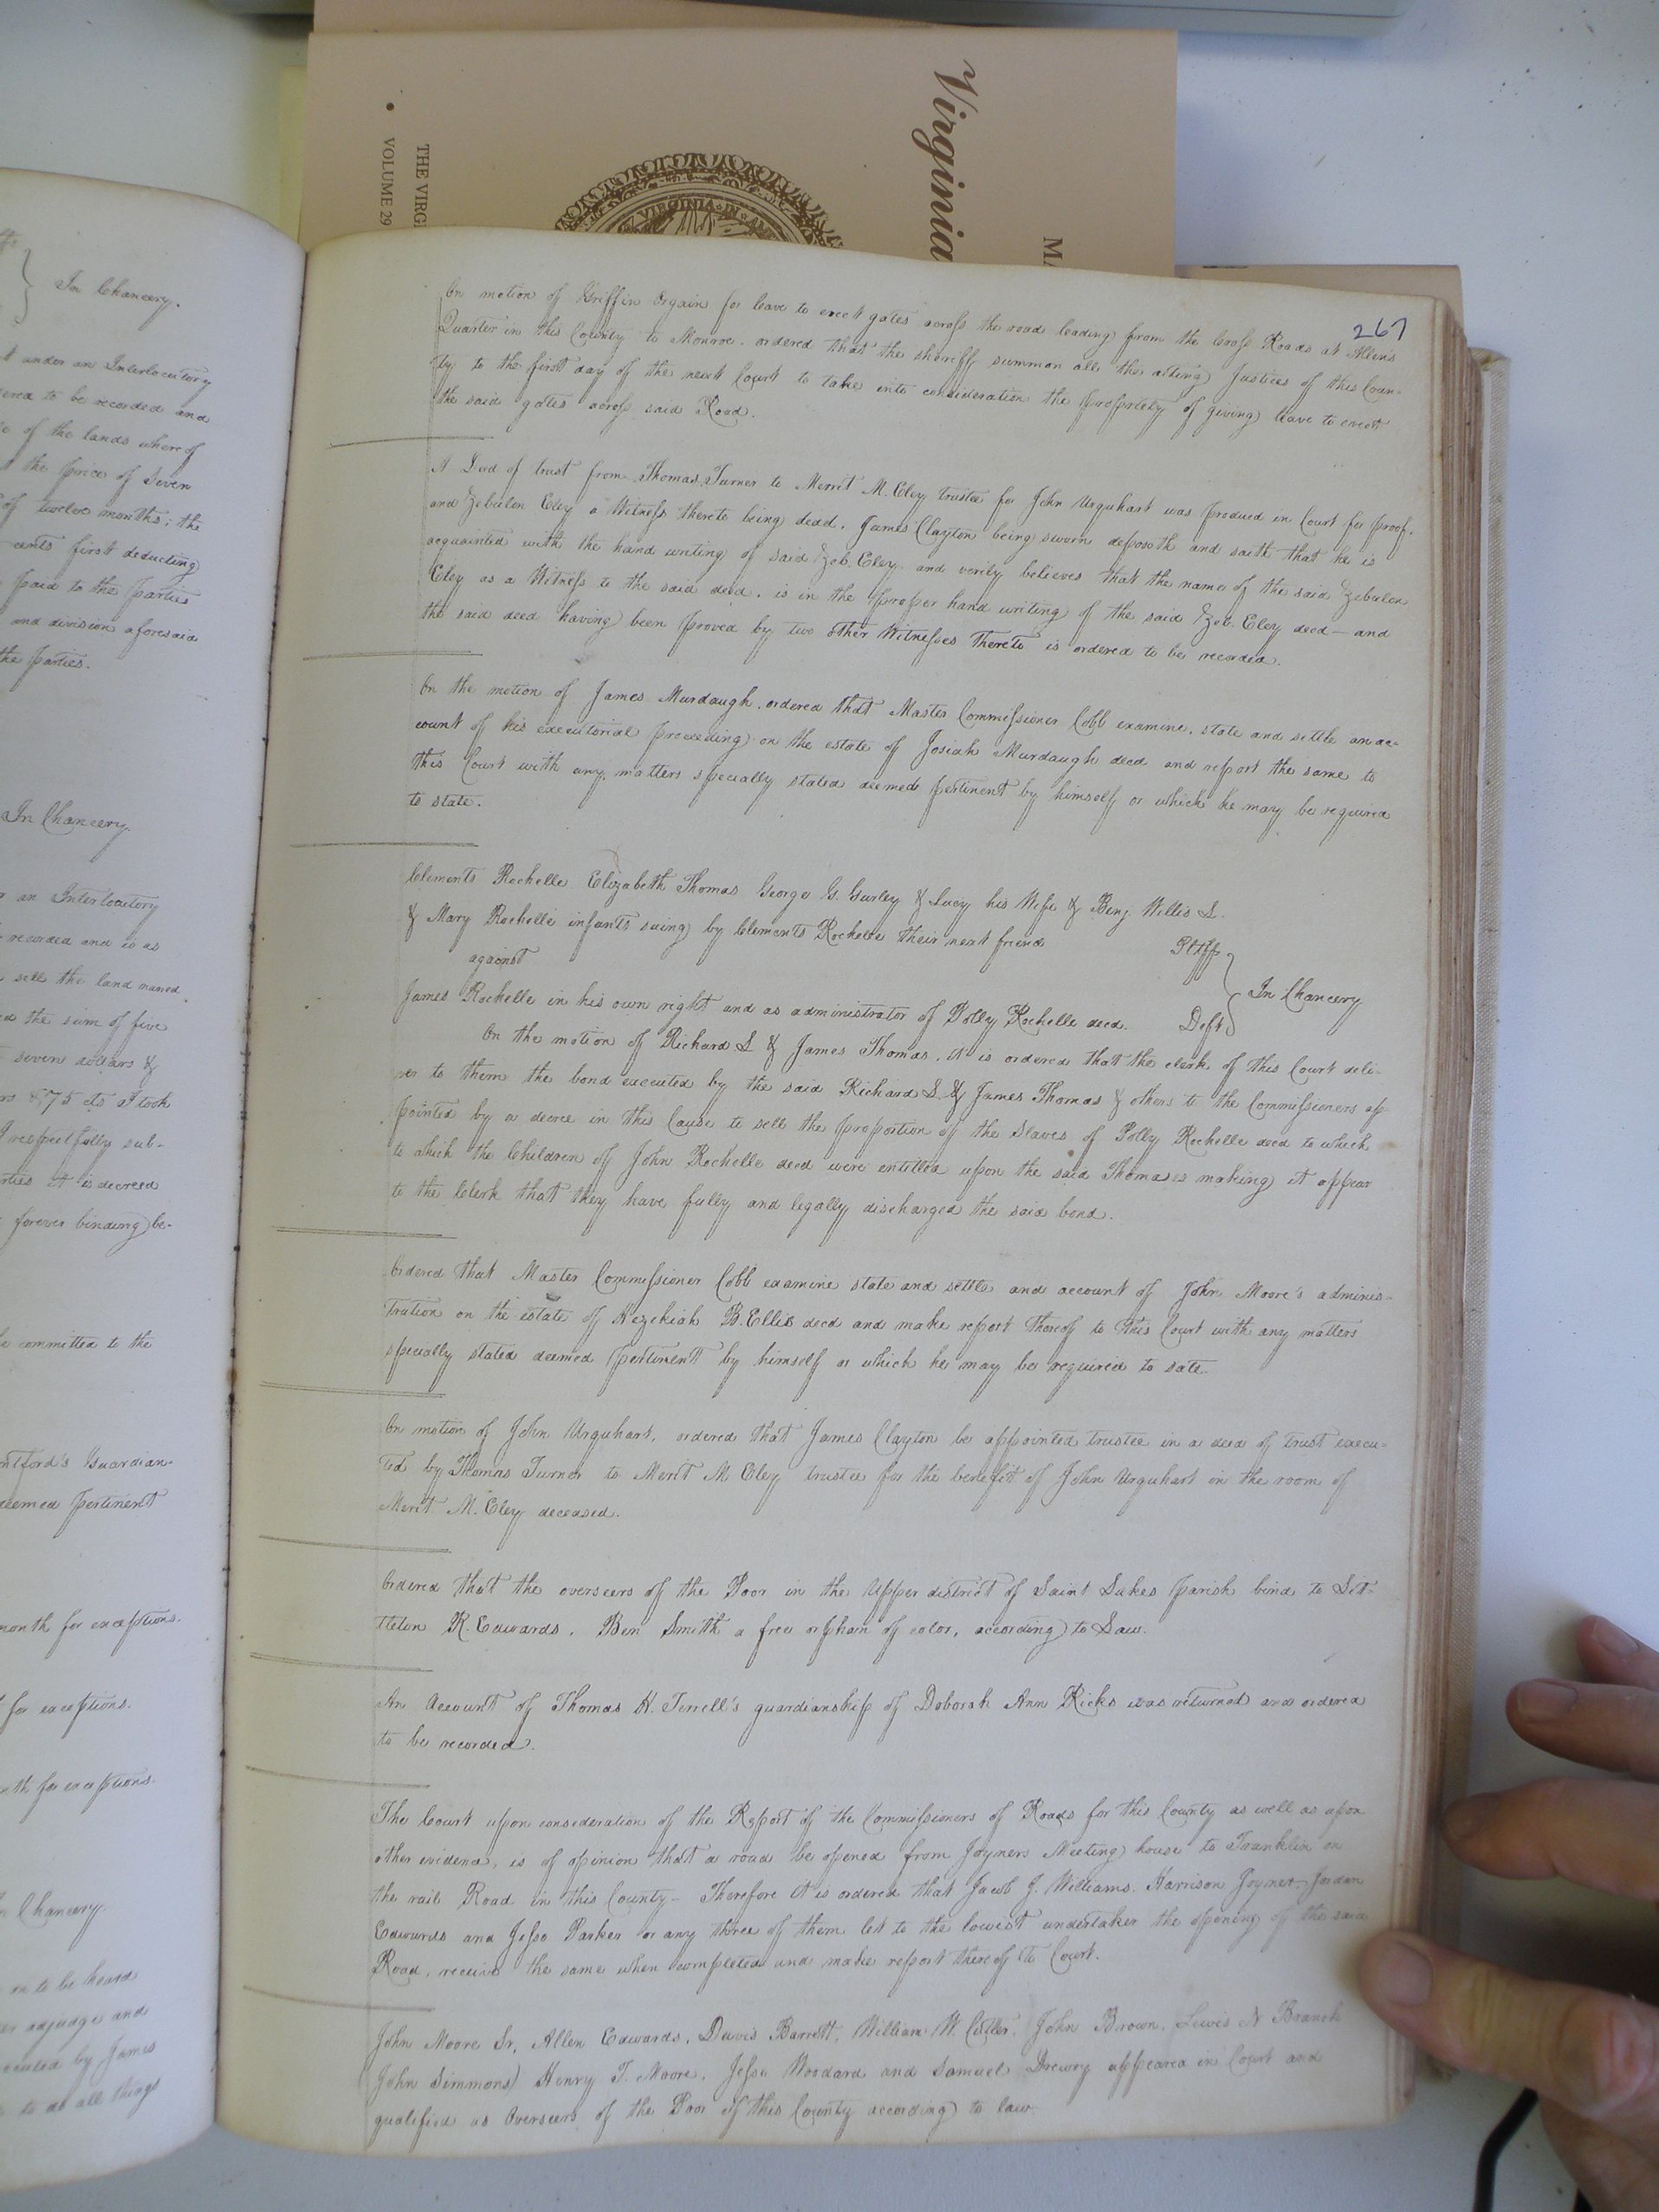 Virginia
THE VIRGI
VOLUME 29
VIRGINIA IN
267
In Chancery.
t under an Interlocutory
ered to be recorded and
of the lands whereof
the price of Seven
of twelve months; the
cents first deducting
paid to the parties
and division aforesaid
the parties.
In Chancery.
an Interlocutory
recorded and is as
sell the land named
the sum of five
seven dollars &
75 cts I took
respectfully sub-
it is decreed
forever binding be-
committed to the
ntford's Guardian-
deemed pertinent
month for exceptions.
for exceptions.
nth for exceptions.
Chancery.
on to be heard
adjudge and
by James
to do all things
On motion of Griffin Orgain for leave to erect gates across the road leading from the Cross Roads at Allen's
Quarter in this County to Monroe. ordered that the sheriff summon all the acting Justices of this Coun-
ty to the first day of the next Court to take into consideration the propriety of giving leave to erect
the said gates across said Road.
A Deed of trust from Thomas Turner to Merrit M. Eley trustee for John Urquhart was produced in Court for proof.
and Zebulon Eley a Witness thereto being dead. James Clayton being sworn deposoth and saith that he is
acquainted with the hand writing of said Zeb. Eley and verily believes that the name of the said Zebulon
Eley as a Witness to the said deed. is in the proper hand writing of the said Zeb. Eley decd - and
the said deed having been proved by two other Witnesses thereto is ordered to be recorded.
On the motion of James Murdaugh. ordered that Master Commissioner Cobb examine, state and settle an ac-
count of his executorial proceeding on the estate of Josiah Murdaugh decd and report the same to
this Court with any matters specially stated deemed pertinent by himself or which he may be required
to state.
Clements Rochelle Elizabeth Thomas George G. Gurley & Lucy his Wife & Benj. Willis L.
& Mary Rochelle infants suing by Clements Rochelle their next friend Pltffs
against
In Chancery
James Rochelle in his own right and as administrator of Polly Rochelle decd. Deft
On the motion of Richard L & James Thomas. it is ordered that the clerk of this Court deli-
ver to them the bond executed by the said Richard L & James Thomas & others to the Commissioners ap-
pointed by a decree in this Cause to sell the proportion of the Slaves of Polly Rochelle decd to which
to which the Children of John Rochelle decd were entitled upon the said Thomases making it appear
to the Clerk that they have fully and legally discharged the said bond.
Ordered that Master Commissioner Cobb examine state and settle and account of John Moore's adminis-
tration on the estate of Hezekiah B. Ellis decd and make report thereof to this Court with any matters
specially stated deemed pertinent by himself or which he may be required to sate.
On motion of John Urquhart, ordered that James Clayton be appointed trustee in a deed of trust execu-
ted by Thomas Turner to Merit M Eley trustee for the benefit of John Urquhart in the room of
Merit M. Eley deceased.
Ordered that the overseers of the Poor in the Upper district of Saint Lukes parish bind to Lit-
tleton R. Edwards. Ben Smith a free orphan of color, according to Law.
An Account of Thomas H. Terrell's guardianship of Deborah Ann Ricks was returned and ordered
to be recorded.
The Court upon consideration of the Report of the Commissioners of Roads for this County as well as upon
other evidence, is of opinion that a road be opened from Joyners Meeting house to Franklin on
the rail Road in this County - Therefore it is ordered that Jacob J. Williams. Harrison Joyner Jordan
Edwards and Jesse Parker or any three of them let to the lowest undertaker the opening of the said
Road, receive the same when completed and make report thereof to Court.
John Moore Sr, Allen Edwards, Davis Barrett, William W. Cutler. John Brown. Lewis N Branch
John Simmons Henry T. Moore, Jesse Woodard and Samuel Drewry appeared in Court and
qualified as Overseers of the Poor of this County according to law